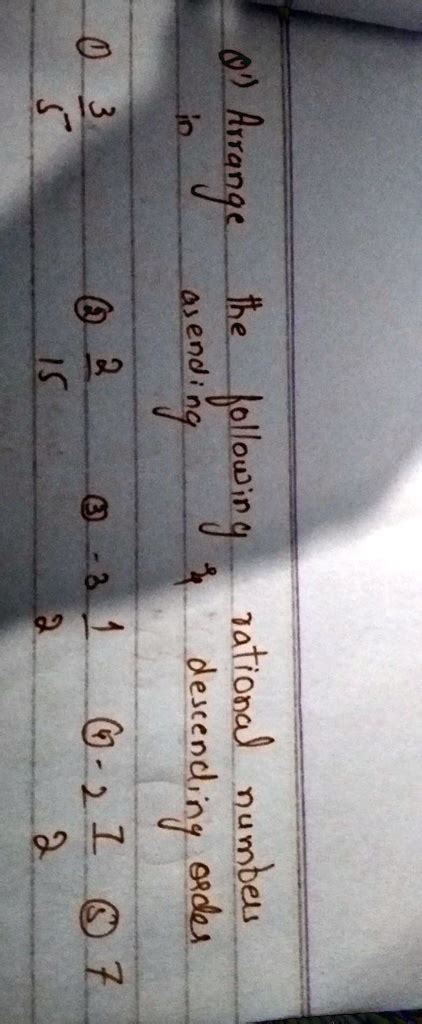 Q1) Arrange the following rational numbers
in asending & descending order
① 3/5 ② 2/15 ③ -3 1/2 ④ -2 1/2 ⑤ 7